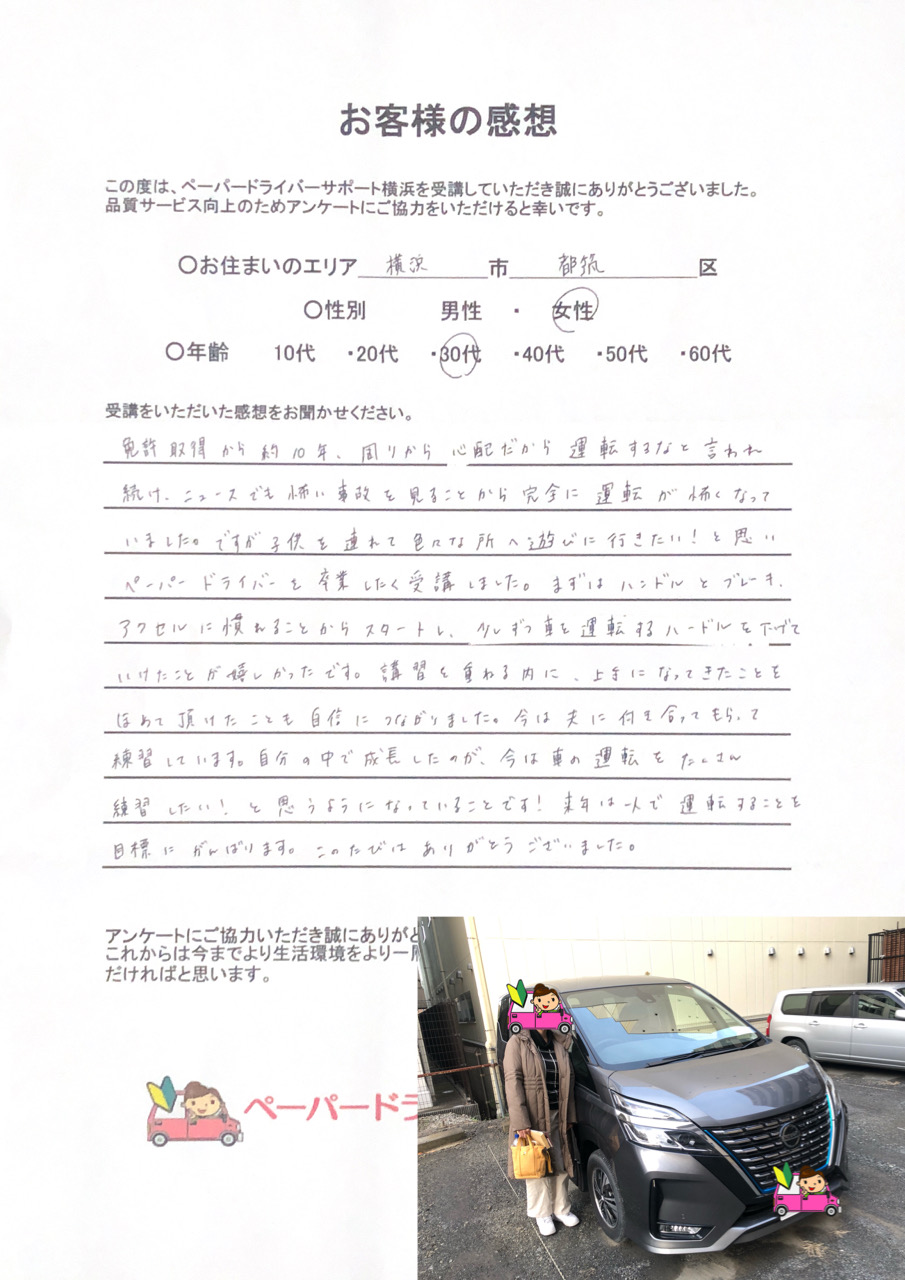 お客様の感想
この度は、ペーパードライバーサポート横浜を受講していただき誠にありがとうございました。
品質サービス向上のためアンケートにご協力をいただけると幸いです。
〇お住まいのエリア 横浜 市 都筑 区
〇性別 男性 ・ 女性
〇年齢 10代 ・20代 ・30代 ・40代 ・50代 ・60代
受講をいただいた感想をお聞かせください。
免許取得から約10年、周りから心配だから運転するなと言われ
続け、ニュースでも怖い事故を見ることから完全に運転が怖くなって
いました。ですが子供を連れて色々な所へ遊びに行きたい!と思い
ペーパードライバーを卒業したく受講しました。まずはハンドルとブレーキ、
アクセルに慣れることからスタートし、少しずつ車を運転するハードルを下げて
いけたことが嬉しかったです。講習を重ねる内に、上手になってきたことを
ほめて頂けたことも自信につながりました。今は夫に付き合ってもらって
練習しています。自分の中で成長したのが、今は車の運転をたくさん
練習したい!と思うようになっていることです!来年は一人で運転することを
目標にがんばります。このたびはありがとうございました。
アンケートにご協力いただき誠にありがと
これからは今までより生活環境をより一層
だければと思います。
ペーパードラ